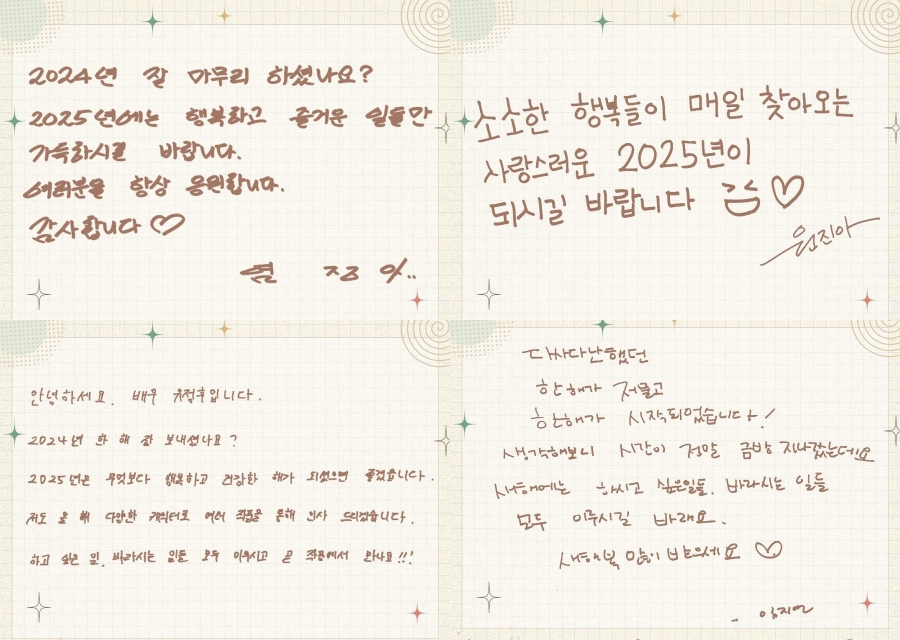 2024년 잘 마무리 하셨나요?
2025년에는 행복하고 즐거운 일들만
가득하시길 바랍니다.
여러분을 항상 응원합니다.
감사합니다♡
염
소소한 행복들이 매일 찾아오는
사랑스러운 2025년이
되시길 바랍니다 ♡
원진아
안녕하세요. 배우 유정후입니다.
2024년 한 해 잘 보내셨나요?
2025년은 무엇보다 행복하고 건강한 해가 되셨으면 좋겠습니다.
저도 올 해 다양한 캐릭터로 여러 작품을 통해 인사 드리겠습니다.
하고 싶은 일, 바라시는 일들 모두 이루시고 곧 작품에서 만나요!!!
다사다난했던
한해가 저물고
한해가 시작되었습니다!
생각해보니 시간이 정말 금방 지나갔는데요
새해에는 하시고 싶은일들, 바라시는 일들
모두 이루시길 바래요.
새해복 많이 받으세요 ♡